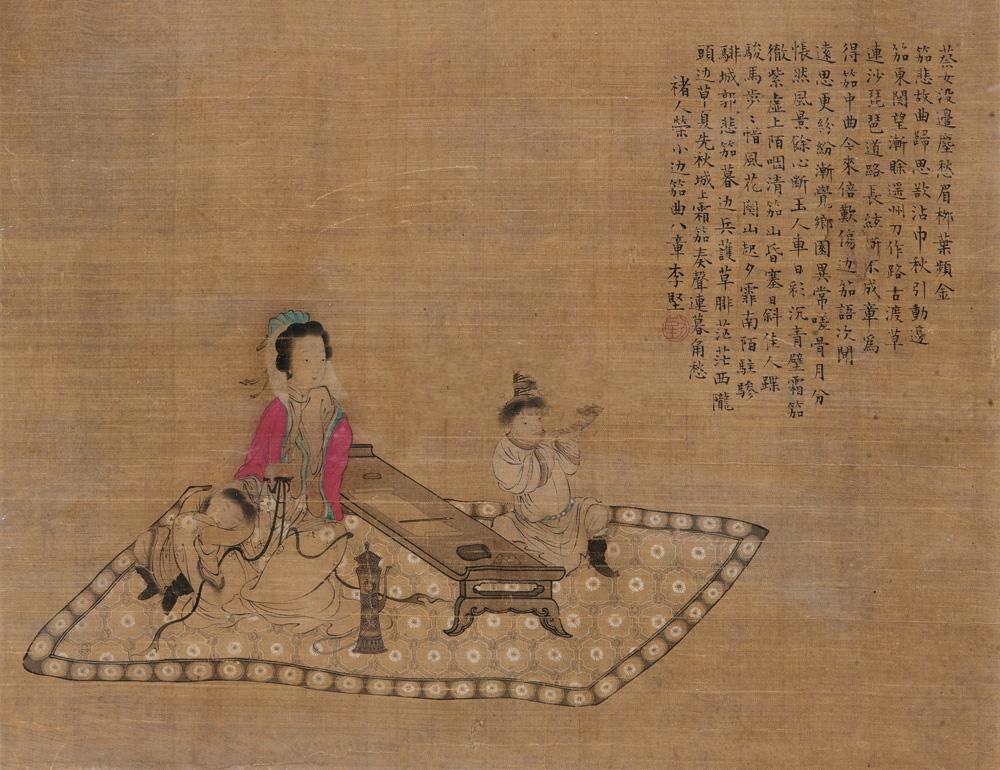 蔡女没邊塵愁眉柳葉頻金
笳悲故曲歸思欲沾巾秋引動邊
笳東関望漸賒遥州刀作路古渡草
連沙琵琶道路長絃斷不成章為
得笳中曲今來倍歎傷边笳語次聞
遠思更紛紛漸覺鄉園異常嗟骨月分
悵然風景餘心斷玉人車日彩沉青壁霜笳
徹紫虚上陌咽清笳山昏塞日斜佳人蹀
駿馬步〻惜風花関山起夕霏南陌駐驂
騑城郭悲笳暮边兵護草腓茫茫西隴
頭边草夏先秋城上霜笳奏聲連暮角愁
褚人榮小边笳曲八章李堅